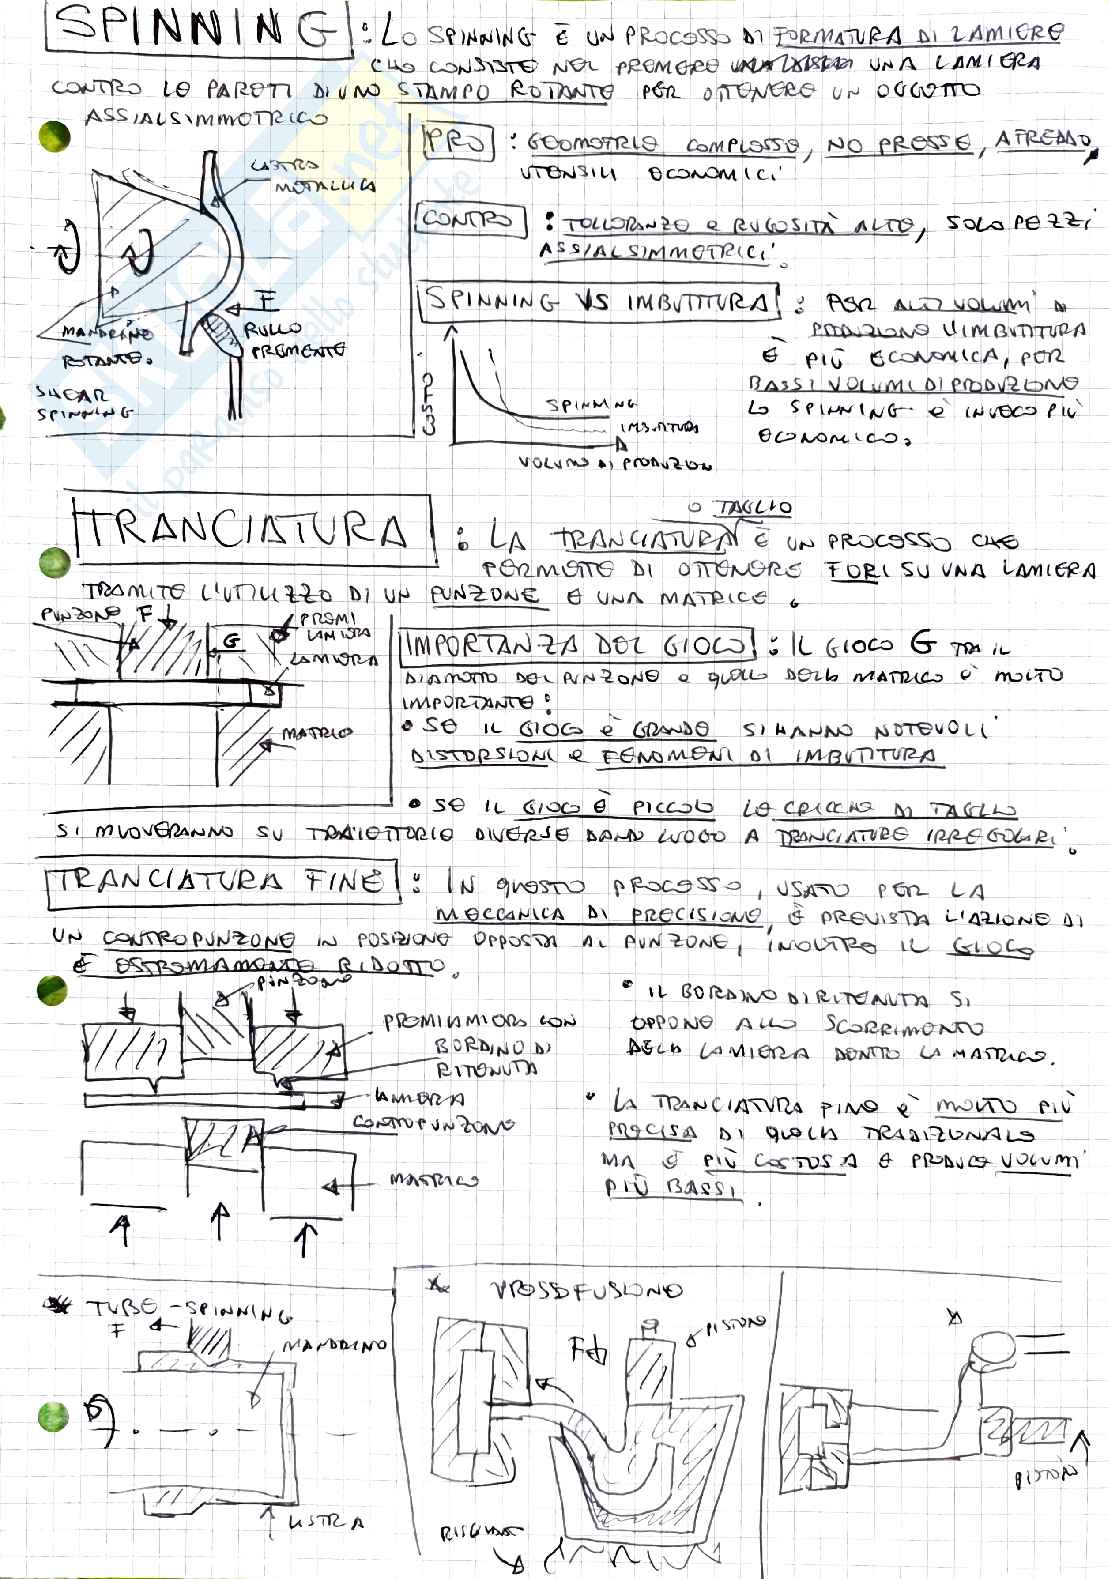 SPINNING : LO SPINNING È UN PROCESSO DI FORMATURA DI LAMIERE
CHE CONSISTE NEL PREMERE UNA LAMIERA
CONTRO LE PARETI DI UNO STAMPO ROTANTE PER OTTENERE UN OGGETTO
ASSIALSIMMETRICO
LASTRA
METALLICA
F
MANDRINO
ROTANTE.
RULLO
PREMENTE
SHEAR
SPINNING
PRO : GEOMETRIE COMPLESSE, NO PRESSE, A FREDDO,
UTENSILI ECONOMICI
CONTRO : TOLLERANZE E RUGOSITÀ ALTE, SOLO PEZZI
ASSIALSIMMETRICI.
SPINNING VS IMBUTITURA : PER ALTI VOLUMI DI
PRODUZIONE L'IMBUTITURA
È PIÙ ECONOMICA, PER
BASSI VOLUMI DI PRODUZIONE
LO SPINNING È INVECE PIÙ
ECONOMICO.
COSTO
SPINNING
IMBUTITURA
VOLUME DI PRODUZION
O TAGLIO
TRANCIATURA : LA TRANCIATURA È UN PROCESSO CHE
PERMETTE DI OTTENERE FORI SU UNA LAMIERA
TRAMITE L'UTILIZZO DI UN PUNZONE E UNA MATRICE.
PUNZONE F
G
PREMI
LAMIERA
LAMIERA
MATRICE
IMPORTANZA DEL GIOCO : IL GIOCO G TRA IL
DIAMETRO DEL PUNZONE E QUELLO DELLA MATRICE È MOLTO
IMPORTANTE:
• SE IL GIOCO È GRANDE SI HANNO NOTEVOLI
DISTORSIONI E FENOMENI DI IMBUTITURA
• SE IL GIOCO È PICCOLO LE CRICCHE DI TAGLIO
SI MUOVERANNO SU TRAIETTORIE DIVERSE DANDO LUOGO A TRANCIATURE IRREGOLARI.
TRANCIATURA FINE : IN QUESTO PROCESSO, USATO PER LA
MECCANICA DI PRECISIONE, È PREVISTA L'AZIONE DI
UN CONTROPUNZONE IN POSIZIONE OPPOSTA AL PUNZONE, INOLTRE IL GIOCO
È ESTREMAMENTE RIDOTTO.
PUNZONE
PREMILAMIERA CON
BORDINO DI
RITENUTA
LAMIERA
CONTROPUNZONE
MATRICE
• IL BORDINO DI RITENUTA SI
OPPONE ALLO SCORRIMENTO
DELLA LAMIERA DENTRO LA MATRICE.
• LA TRANCIATURA FINE È MOLTO PIÙ
PRECISA DI QUELLA TRADIZIONALE
MA È PIÙ COSTOSA E PRODUCE VOLUMI
PIÙ BASSI.
* TUBE-SPINNING
F
MANDRINO
LASTRA
* PRESSOFUSIONE
F
PISTONE
PISTONE